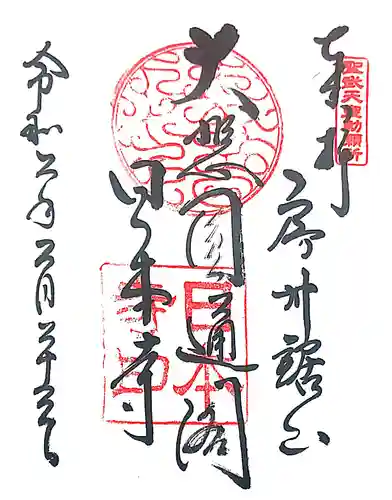 奉拝
聖武天皇勅願所
房州鋸山
大悲圓通閣
日本寺
日本寺印
令和二年二月二十三日